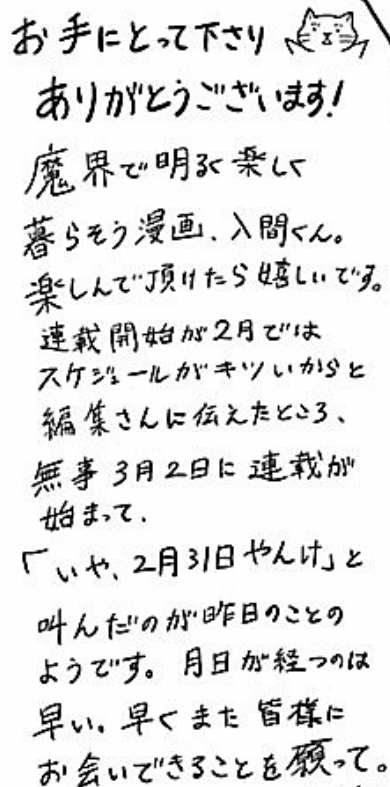 お手にとって下さり
ありがとうございます!
魔界で明るく楽しく
暮らそう漫画、入間くん。
楽しんで頂けたら嬉しいです。
連載開始が2月では
スケジュールがキツいからと
編集さんに伝えたところ、
無事3月2日に連載が
始まって、
「いや、2月31日やんけ」と
叫んだのが昨日のことの
ようです。月日が経つのは
早い。早くまた皆様に
お会いできることを願って。